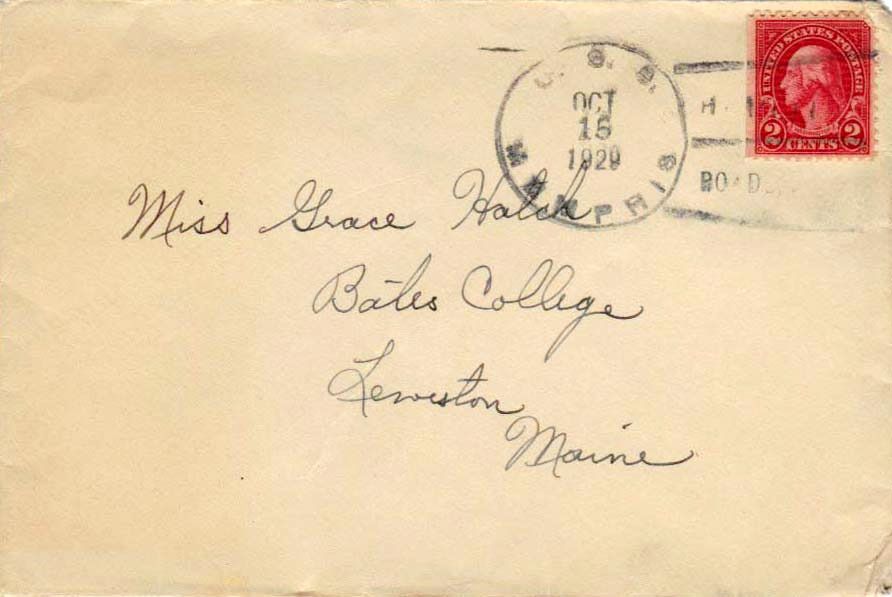 U. S. S.
OCT
15
1929
MEMPHIS
UNITED STATES POSTAGE
2 CENTS 2
Miss Grace Hatch
Bates College
Lewiston
Maine